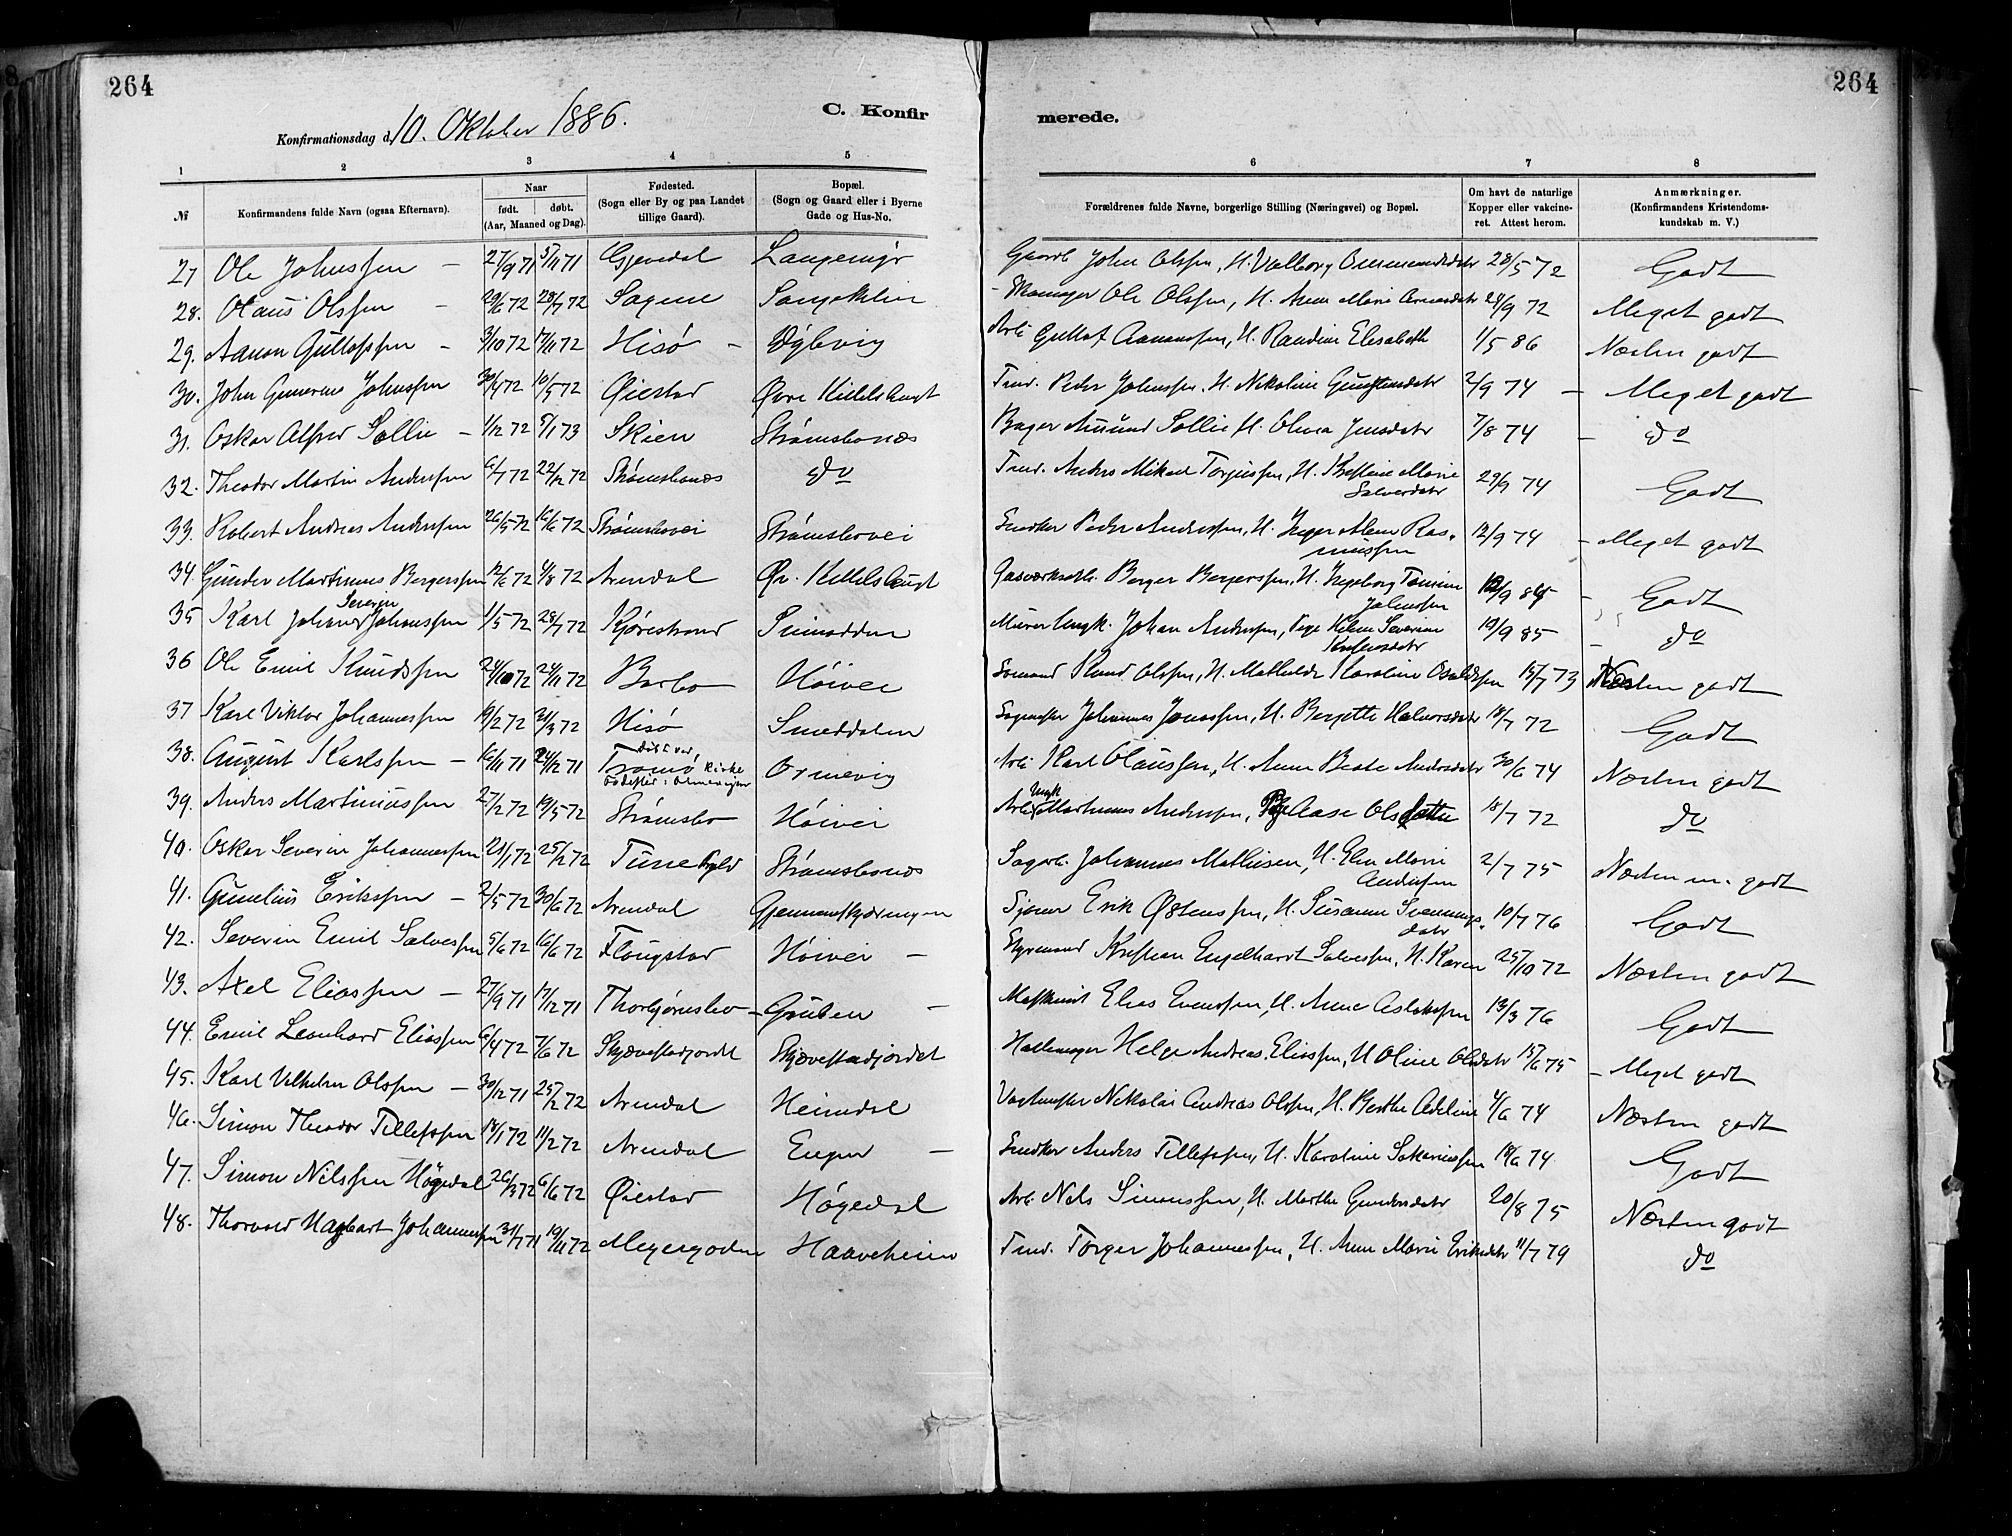 264
264
Konfirmationsdag d. 10. Oktober 1886.
C. Konfir
merede.
1 2 3 4 5 6 7 8
№ Konfirmandens fulde Navn (ogsaa Efternavn). Naar født. døbt. (Aar, Maaned og Dag). Fødested. (Sogn eller By og paa Landet tillige Gaard). Bopæl. (Sogn og Gaard eller i Byerne Gade og Hus-No. Forældrenes fulde Navne, borgerlige Stilling (Næringsvei) og Bopæl. Om havt de naturlige Kopper eller vakcineret. Attest herom. Anmærkninger. (Konfirmandens Kristendomskundskab m. V.)
27 Ole Johnssen – 27/9 71 5/11 71 Gjevedal Langemyr Gaardb. John Olssen, H. Valborg 28/5 72 Godt
28. Olaus Olssen – 29/6 72 28/7 72 Sagene Ole Olssen, H. Anne Marie 28/9 72 Meget godt
29. Aanon Gullofssen – 3/10 72 17/11 72 Hisø – Arb. Gullof Aanonssen, H. Randine Elisabeth 1/5 86 Næsten godt
30. John Gunerius Johnssen 30/4 72 10/5 72 Øiestad Øvre Kittelsbugt Tmd. Peder Johnssen, H. Nikoline 2/9 74 – Meget godt
31. Oskar Alfred Sollie – 1/12 72 5/1 73 Skien Strømsbonæs Bager Amund Sollie H. Olivia Jensdatr 7/8 74 – do
32. Theodor Martin Anderssen 6/7 72 22/12 72 Strømsbonæs do Tmd. Anders Mikael Torjussen, H. Kristine Marie Salvesdatr 29/9 74 Godt
33. Robert Andreas Anderssen 26/5 72 16/6 72 Strømsbovei Strømsbovei Snedker Peder Anderssen, H. Inger Alene Rasmussen 12/9 74 – Meget godt
34 Gunder Martinius Bergerssen 12/6 72 4/8 72 Arendal Øv. Kittelsbugt Gasværksarb. Berger Bergerssen, H. Ingeborg Tomine Johnssen 12/9 84 – Godt
35 Karl Johan Severin Johanssen 1/5 72 28/7 72 Kjørestrand Murer Ungk. Johan Anderssen, Pige Helene Severine 19/9 85 – do
36 Ole Emil Knudssen 24/10 72 24/11 72 Barbo Høivei Sømand Knud Olssen, H. Mathilde Karoline 15/7 73 Næsten godt
37 Karl Viktor Johannessen 19/2 72 31/3 72 Hisø Smeddalen Sagmester Johannes Jonassen, H. Bergette Halvorsdatr 18/7 72 Godt
38. August Karlssen – 16/11 71 24/12 71 Tromø Kirke Ormevig Arb. Karl Claussen, H. Anne Beate Andersdatr 30/6 74 Næsten godt
39. Anders Martiniussen 27/2 72 19/5 72 Strømsbo Høivei Arb. Ungk. Martinius Anderssen, Pige Aase Olsdatter 18/7 72 do
40. Oskar Severin Johannessen 21/1 72 25/2 72 Tune Strømsbonæs Sagarb. Johannes Mathisen, H. Elen Marie Anderssen 2/7 75 Næsten m. godt
41. Gunelius Erikssen – 2/5 72 30/6 72 Arendal Gjennemskjæringen Sjømd Erik Østenssen, H. Susanne Svenningsdatr 10/7 76 Godt
42. Severin Emil Salvessen 5/6 72 16/6 72 Flougstad Høivei – Styrmand Kristian Engelhardt Salvessen, H. Karen 25/10 72 Næsten godt
43. Axel Eliassen – 27/9 71 17/12 71 Thorbjørnsbo – Gruben – Maskinist Elias Evenssen, H. Anne Aslakssen 13/3 76 Godt
44. Emil Leonhard Eliassen 6/4 72 7/6 72 Skjævestadjordet Skjævestadjordet Helge Andreas Eliassen, H Oline Olsdatr 15/6 75 – Meget godt
45. Karl Vilhelm Olssen – 30/12 71 25/2 72 Arendal Heimdal Nikolai Andreas Olssen, H. Berthe Adeline 4/6 74 Næsten godt
46. Simon Theodor Tellefssen 18/1 72 11/2 72 Arendal Engen – Snedker Anders Tellefssen, H. Karoline Sakariassen 18/6 74 Godt
47. Simon Nilssen Høgedal 26/3 72 6/6 72 Øiestad Høgedal Arb. Nels Simonssen, H. Marthe Gundersdatr 20/8 75 Næsten godt
48. Thorvald Hagbart Johannessen 31/7 71 19/11 72 Haaveheien Tmd. Torger Johannessen, H. Anne Marie Eriksdatr 11/7 79 do